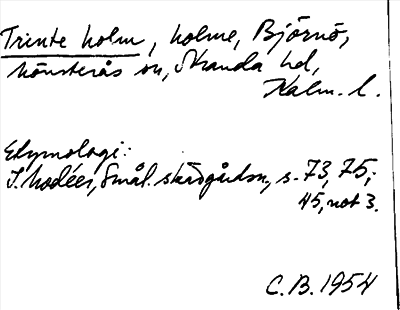 Trinte holm, holme, Björnö,
Mönsterås sn, Stranda hd,
Kalm. l.
Etymologi:
I. Modéer, Smål. skärgårdsn, s. 73, 75,
45, not 3.
C. B. 1954